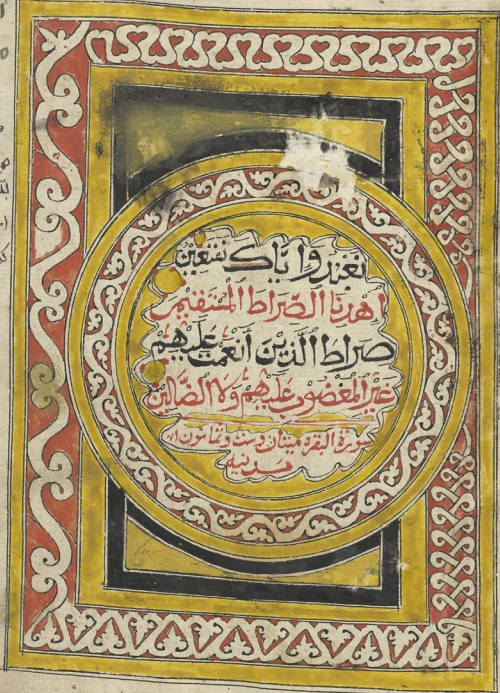 نَعْبُدُ وَإِيَّاكَ نَسْتَعِينُ
اهْدِنَا الصِّرَاطَ الْمُسْتَقِيمَ
صِرَاطَ الَّذِينَ أَنْعَمْتَ عَلَيْهِمْ
غَيْرِ الْمَغْضُوبِ عَلَيْهِمْ وَلَا الضَّالِّينَ
سورة البقرة ميتان وست وثمانون
مدنية